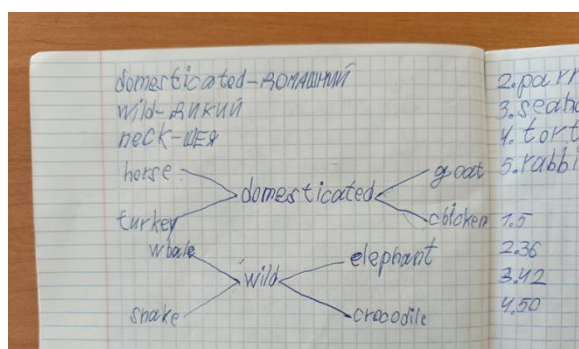 domesticated-ДОМАШНИЙ
wild-ДИКИЙ
neck-ШЕЯ
horse goat
domesticated
turkey chicken
whale elephant
wild
snake crocodile
2.parr
3.seaho
4.tort
5.rabbi
1.5
2.36
3.42
4.50